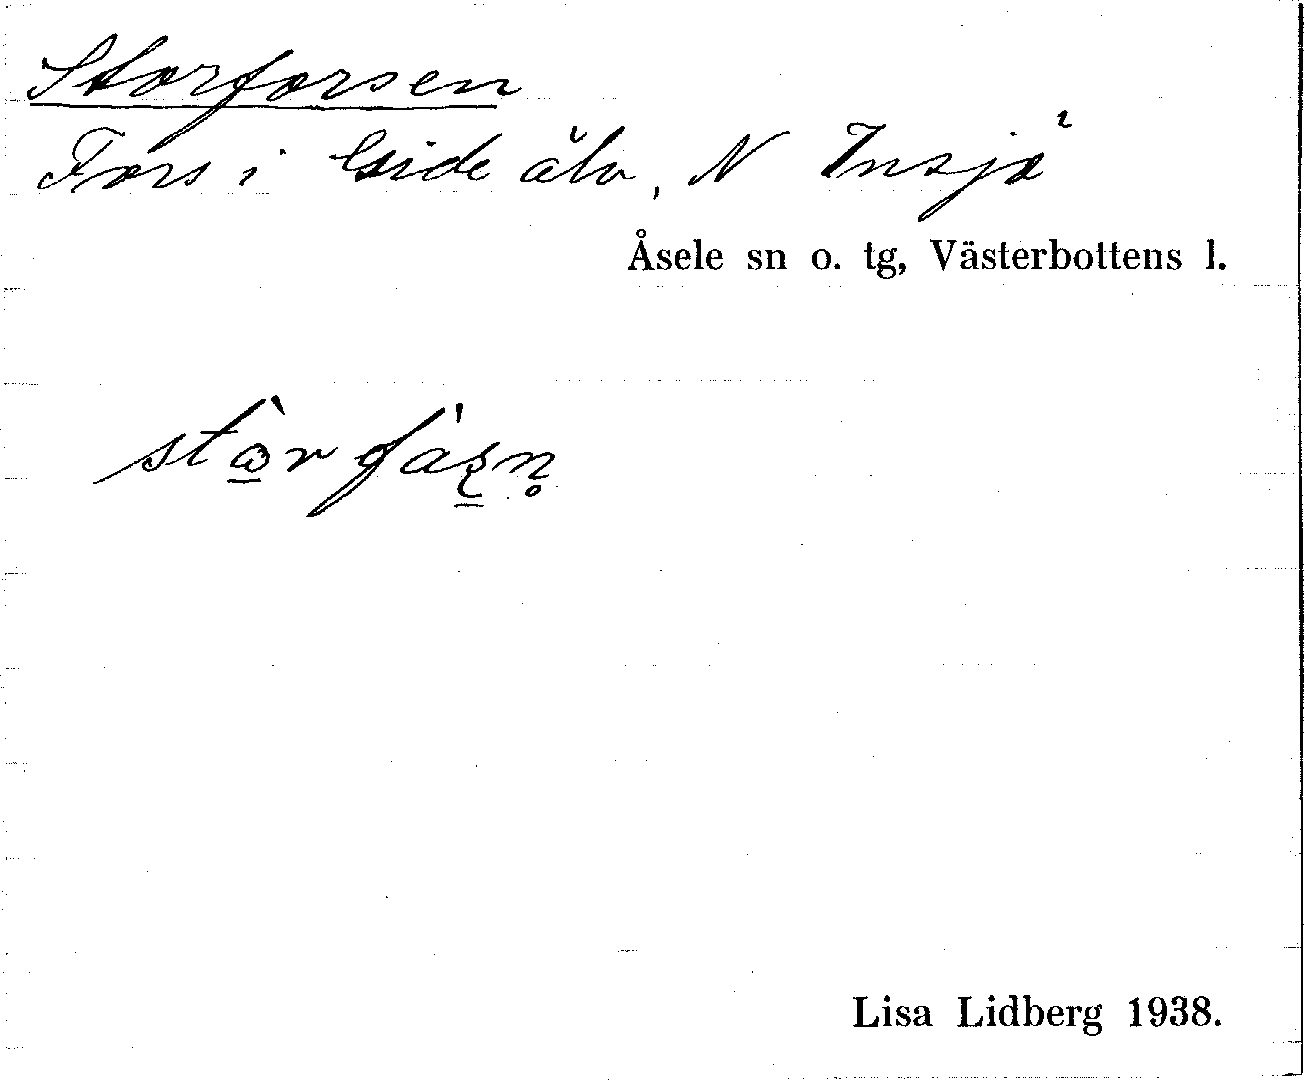 Storforsen
Fors i Gide älv, N Insjö
Åsele sn o. tg, Västerbottens l.
Lisa Lidberg 1938.